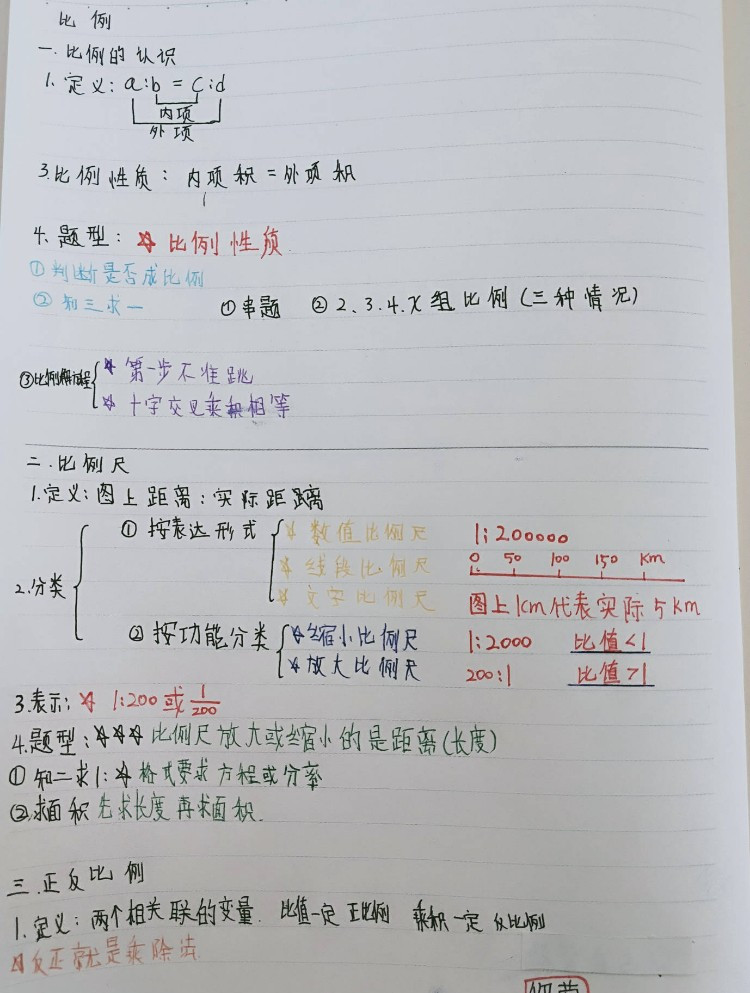 比例
一.比例的认识
1.定义:a:b = c:d
内项
外项
3.比例性质:内项积=外项积
4.题型:☆比例性质
①判断是否成比例
②知三求一 ①串题 ②2.3.4.x组比例(三种情况)
③比例解方程
☆第一步不准跳
☆十字交叉乘积相等
二.比例尺
1.定义:图上距离:实际距离
2.分类
①按表达形式
☆数值比例尺 1:200000
☆线段比例尺 0 50 100 150 km
☆文字比例尺 图上1cm代表实际5km
②按功能分类
☆缩小比例尺 1:2000 比值<1
☆放大比例尺 200:1 比值>1
3.表示:☆ 1:200或1/200
4.题型:☆☆☆比例尺放大或缩小的是距离(长度)
①知二求1:☆格式要求方程或分率
②求面积 先求长度再求面积.
三.正反比例
1.定义:两个相关联的变量. 比值一定 正比例 乘积一定 反比例
☆反正就是乘除法